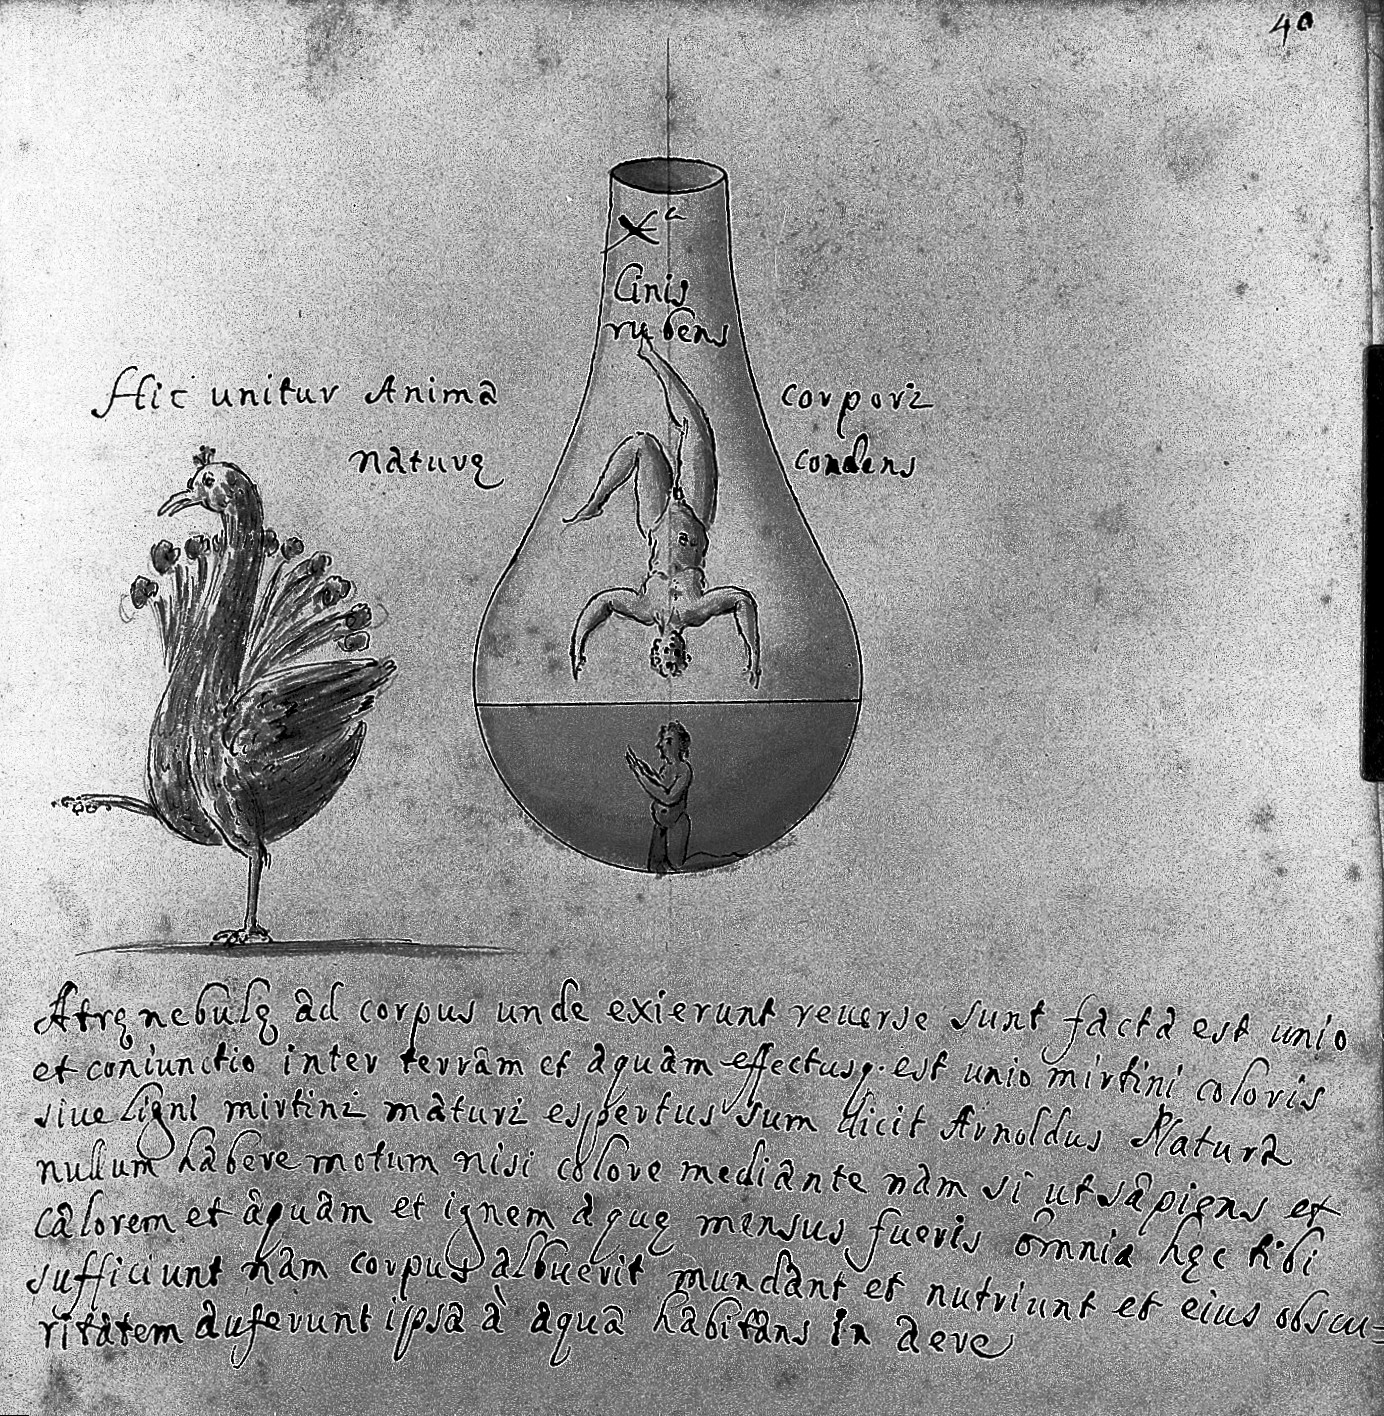 40
Cinis
rubens
Hic unitur Anima corpori
naturę condens
Atrę nebulę ad corpus unde exierunt reuerse sunt facta est unio
et coniunctio inter terram et aquam effectusq. est unio mirtini coloris
siue ligni mirtini maturi espertus sum dicit Arnoldus Natura
nullum habere motum nisi colore mediante nam si ut sapiens et
calorem et aquam et ignem aquę mensus fueris omnia hęc tibi
sufficiunt nam corpus albuerit mundant et nutriunt et eius obscu=
ritatem auferunt ipsa à aqua habitans in aere